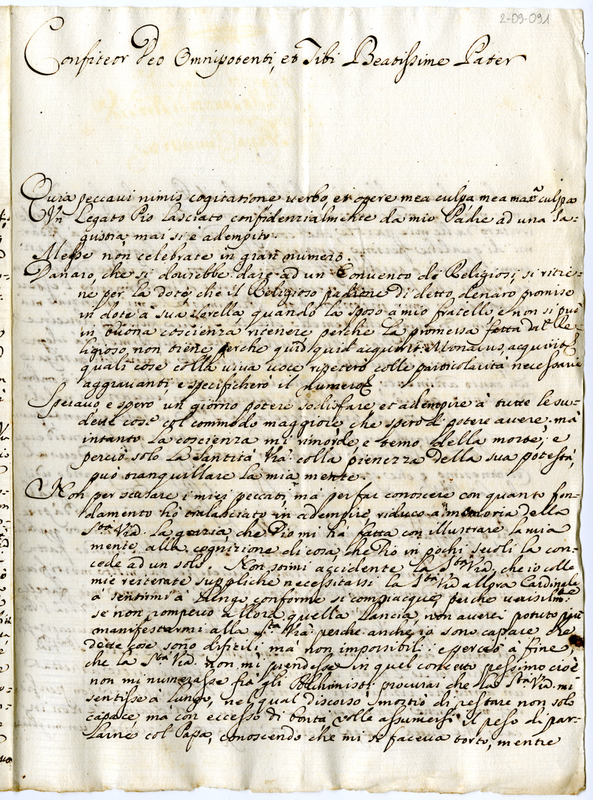 2-09-091
Confiteor Deo Omnipotenti, et Tibi Beatissime Pater
Quia peccavi nimis cogitatione verbo et opere mea culpa mea max.ª culpa
Un Legato Pio lasciato confidenzialmente da mio Padre ad una
mai si è adempito.
Messe non celebrate in gran numero.
Danaro, che si dovrebbe dare ad un Convento de Religiosi, si ritie-
ne per la dote, che il Religioso padrone di detto denaro promise
in dote a sua sorella, quando la sposò a mio fratello, e non si può
in buona coscienza ritenere perche la promessa fatta dal Re-
ligioso, non tiene, perche quidquid acquirit Monacus, acquirit
quali cose colla viva voce ripeterò colle particolarità necessarie
aggravanti, e specificherò il numero.
Speravo e spero un giorno potere sodisfare, et adempire à tutte le su-
dette cose col commodo maggiore, che spero di potere avere, mà
intanto la coscienza mi rimorde, e temo della morte, e
perciò solo la Santità Vra colla pienezza della sua potestà,
può tranquillare la mia mente.
Non per scusare i miei peccati, ma per far conoscere con quanto fon-
damento hò tralasciato in adempire, riduco à memoria della
Stà Vrã la grazia, che Dio mi hà fatta con illustrare la mia
mente alla cognizione di cosa, che Dio in pochi secoli la con-
cede ad un solo. Non fù mi accidente la Stà Vrã, che io colle
mie reiterate suppliche necessitassi la Stà Vrã allora Cardinale
a sentirmi à lungo conforme si compiacque, perche
se non rompevo allora quella lancia, non averei potuto più
manifestarmi alla Stà Vrã perche anche io sono capace, che
dette cose sono dificili, ma non impossibili: e perciò à fine,
che la Stà Vrã non mi prendesse in quel concetto pessimo cioè
non mi numerasse frà gli Alchimisti, procurai che la Stà Vrã mi
sentisse à lungo, nel qual discorso mostrò di restare non solo
capace, ma con eccesso di bontà volle assumersi il peso di par-
larne col Papa, conoscendo che mi si faceva torto, mentre